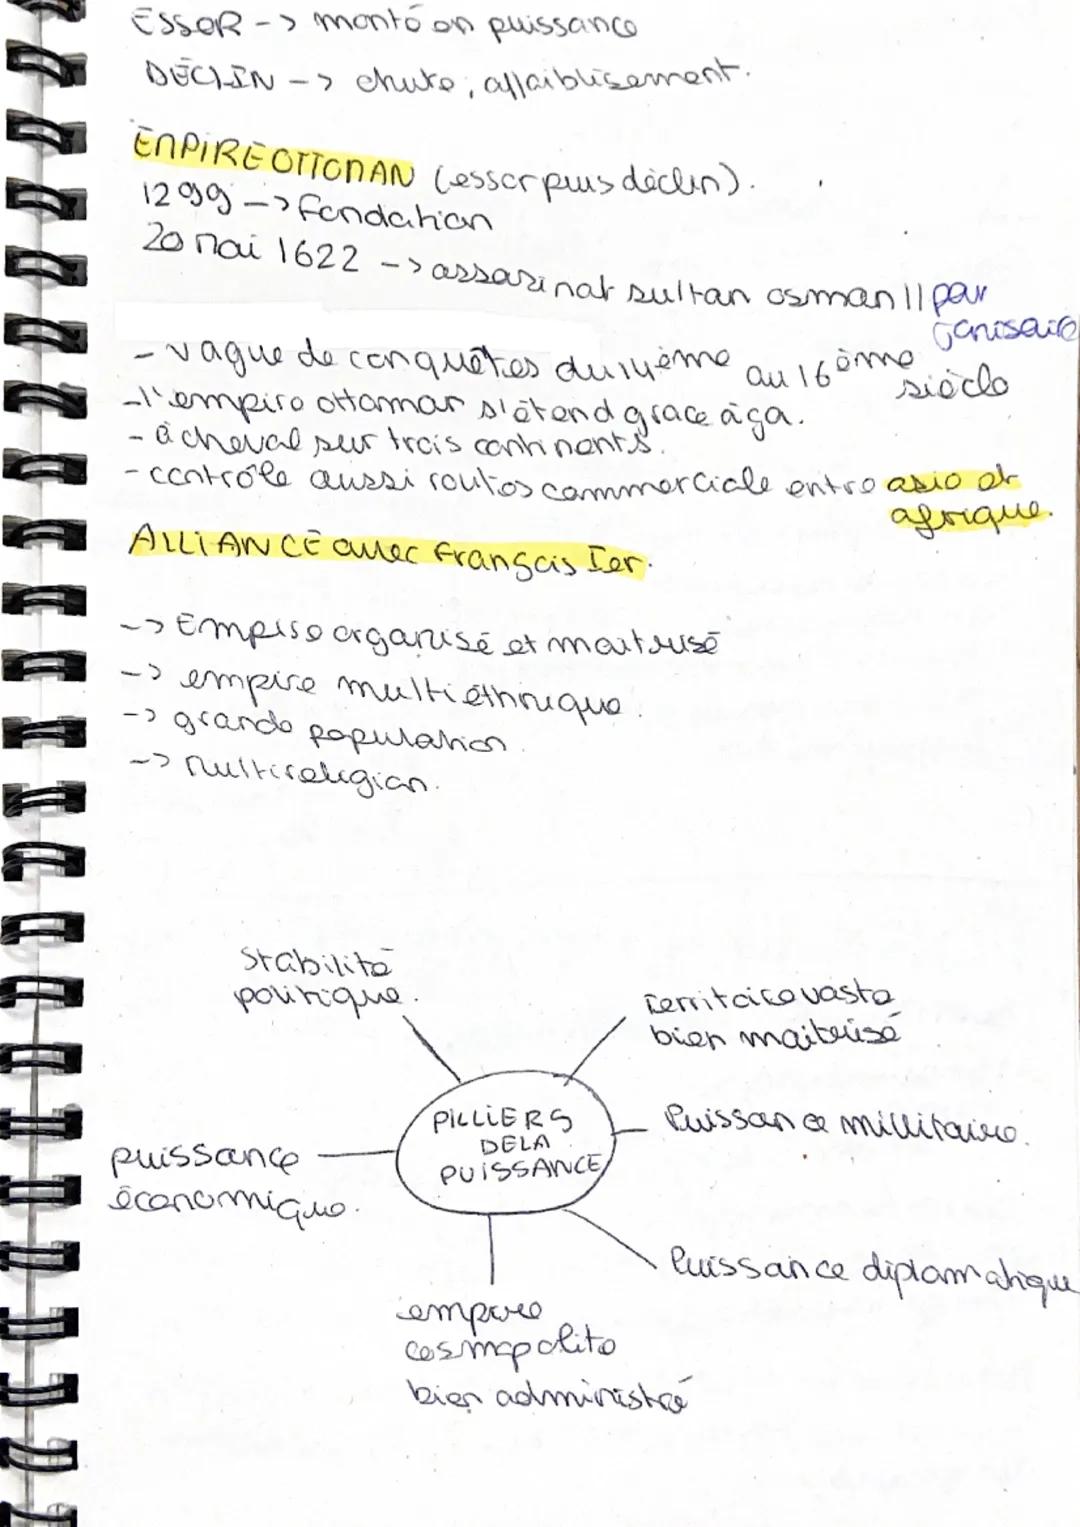 ESSOR -> monté en puissance
DÉCLIN -> chute, affaiblisement.
EMPIRE OTTOMAN (essor puis déclin).
1299 -> fondation
20 mai 1622 -> assasinat sultan osman II par
janisaire
- vague de conquêtes du 14ème au 16ème siècle
- l'empire ottoman s'étend grace à ça.
- à cheval sur trois continents.
- contrôle aussi routes commerciale entre asie et
afrique.
ALLIANCE avec français Ier.
-> Empire organisé et maitrisé
-> empire multiéthnique.
-> grande population.
-> multireligion.
Stabilité
politique.
Territoire vaste
bien maitrisé
PILLIERS
DE LA
PUISSANCE
Puissance millitaire.
puissance
économique.
Puissance diplomatique
empire
cosmopolite
bien administré